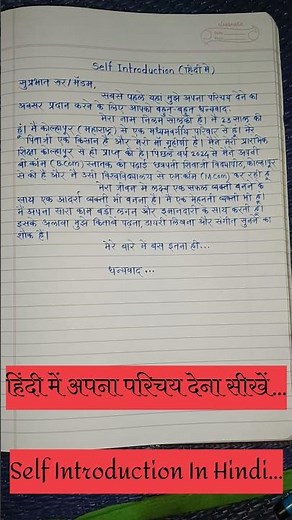 Self Introduction (हिंदी में)
सुप्रभात सर/मॅडम,
सबसे पहले यहा मुझे अपना परिचय देने का
अवसर प्रदान करने के लिए आपका बहुत-बहुत धन्यवाद.
मेरा नाम निलम सोळंकी है। मैं 23 साल की
हूं। मैं कोल्हापुर (महाराष्ट्र) से एक मध्यमवर्गीय परिवार से हूं। मेरे
पिताजी एक किसान है और मेरी माँ गृहीणी है। मैने मेरी प्राथमिक
शिक्षा कोल्हापुर से ही प्राप्त की है। पिछले वर्ष 2024 में मैने अपनी
बी कॉम (BCom) स्नातक की पढाई छत्रपती शिवाजी विद्यापीठ, कोल्हापुर
से की है और मैं उसी विश्वविद्यालय से एम कॉम (MCom) कर रही हूं
मेरा जीवन में लक्ष्य एक सफल व्यक्ती बनने के
साथ एक आदर्श व्यक्ती भी बनना है। मैं एक मेहनती व्यक्ती भी हूं।
मैं अपना सारा काम बडी लगन और इमानदारी के साथ करती हूं।
इसके अलावा मुझे किताबे पढना, डायरी लिखना और संगीत सुनने का
शौक है।
मेरे बारे में बस इतना ही...
धन्यवाद...
हिंदी में अपना परिचय देना सीखें...
Self Introduction In Hindi...